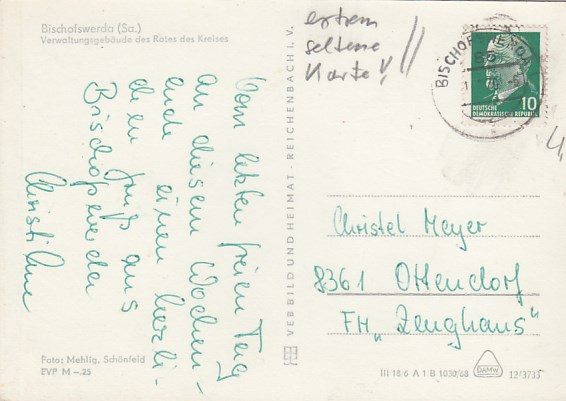 Bischofswerda (Sa.)
Verwaltungsgebäude des Rates des Kreises
extrem
seltene
Karte!!
BISCHOFSWERDA
DEUTSCHE
DEMOKRATISCHE REPUBLIK
10
Vom letzten freien Tag
an diesem Wochen-
ende einen herzli-
chen Gruß aus
Bischofswerda
Christiane
VEB BILD UND HEIMAT · REICHENBACH I. V.
Christel Meyer
8361 Ottendorf
FH „Zeughaus"
Foto: Mehlig, Schönfeld
EVP M –.25
III 18 6 A 1 B 1030/68
DAMW
12/3733